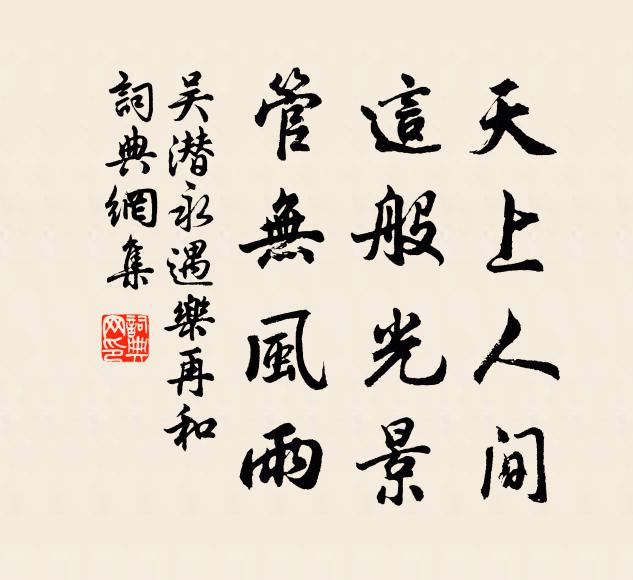 天上人間
這般光景
管無風雨
吴潜永遇樂再和
詞典網集
詞典網印